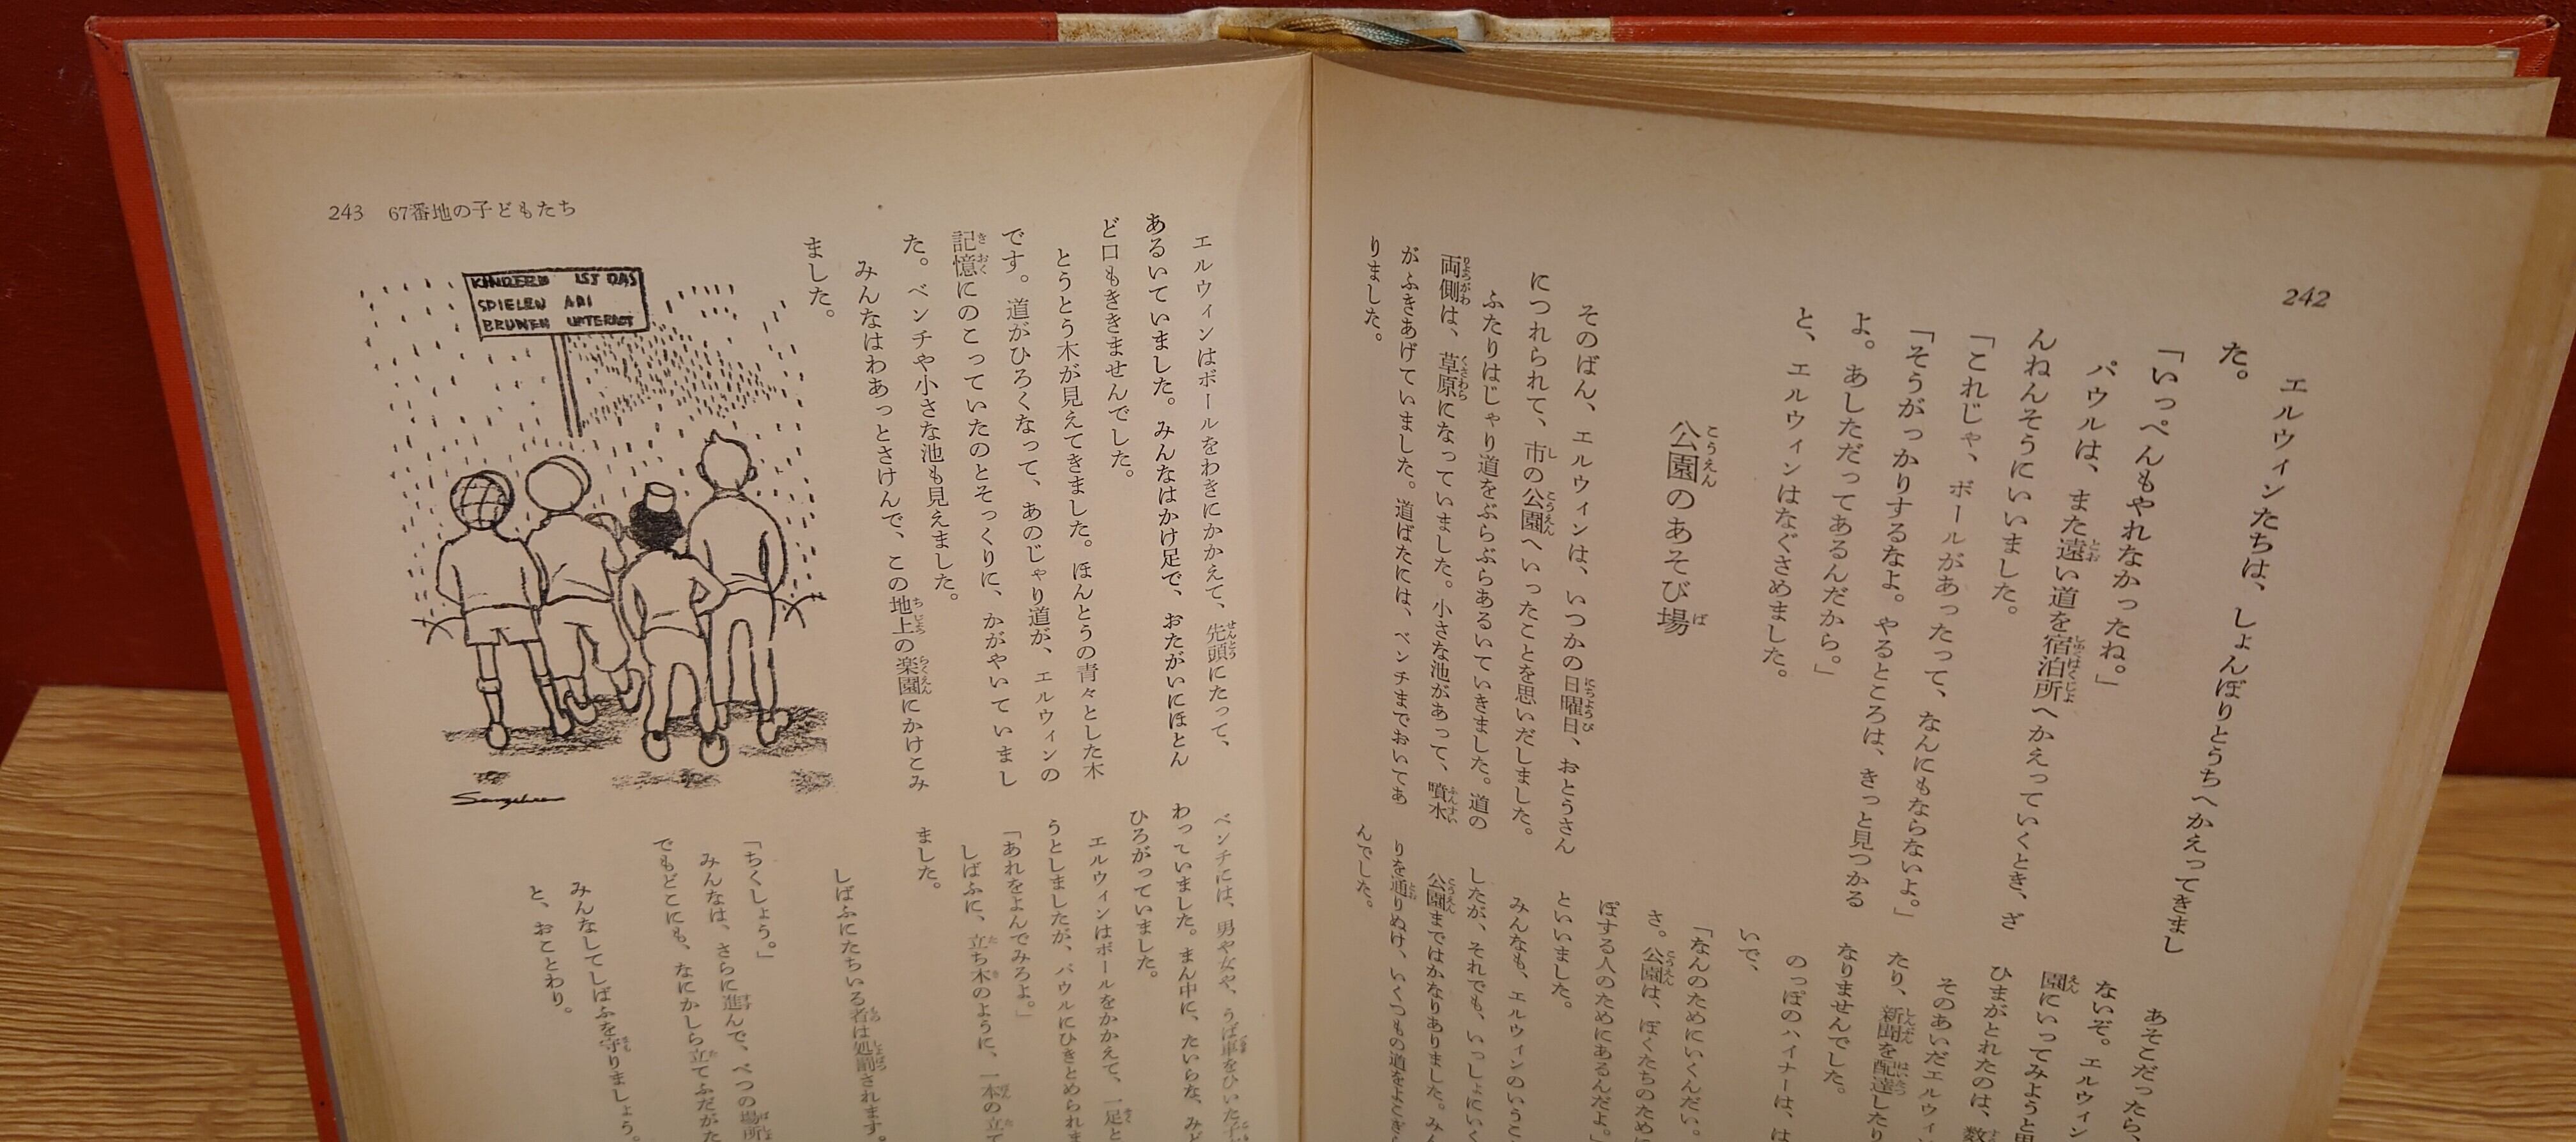 242
エルウィンたちは、しょんぼりとうちへかえってきまし
た。
「いっぺんもやれなかったね。」
パウルは、また遠い道を宿泊所へかえっていくとき、ざ
んねんそうにいいました。
「これじゃ、ボールがあったって、なんにもならないよ。」
「そうがっかりするなよ。やるところは、きっと見つかる
よ。あしただってあるんだから。」
と、エルウィンはなぐさめました。
公園のあそび場
そのばん、エルウィンは、いつかの日曜日、おとうさん
につれられて、市の公園へいったことを思いだしました。
ふたりはじゃり道をぶらぶらあるいていきました。道の
両側は、草原になっていました。小さな池があって、噴水
がふきあげていました。道ばたには、ベンチまでおいてあ
りました。
あそこだったら、
ないぞ。エルウィン
園にいってみようと思
ひまがとれたのは、数
そのあいだエルウィ
たり、新聞を配達したり
なりませんでした。
のっぽのハイナーは、は
いで、
「なんのためにいくんだい。
さ。公園は、ぼくたちのために
ぽする人のためにあるんだよ。」
といいました。
みんなも、エルウィンのいうこ
したが、それでも、いっしょにいく
公園まではかなりありました。みん
りを通りぬけ、いくつもの道をよこぎら
んでした。
243 67番地の子どもたち
エルウィンはボールをわきにかかえて、先頭にたって、
あるいていました。みんなはかけ足で、おたがいにほとん
ど口もききませんでした。
とうとう木が見えてきました。ほんとうの青々とした木
です。道がひろくなって、あのじゃり道が、エルウィンの
記憶にのこっていたのとそっくりに、かがやいていまし
た。ベンチや小さな池も見えました。
みんなはわあっとさけんで、この地上の楽園にかけこみ
ました。
KINDERN IST DAS
SPIELEN AM
BRUNEN UNTERAGT
ベンチには、男や女や、うば車をひいた子
わっていました。まん中に、たいらな、みど
ひろがっていました。
エルウィンはボールをかかえて、一足と
うとしましたが、パウルにひきとめられま
「あれをよんでみろよ。」
しばふに、立ち木のように、一本の立て
ました。
しばふにたちいる者は処罰されます。
「ちくしょう。」
みんなは、さらに進んで、べつの場所
でもどこにも、なにかしら立てふだがた
みんなしてしばふを守りましょう。
と、おことわり。